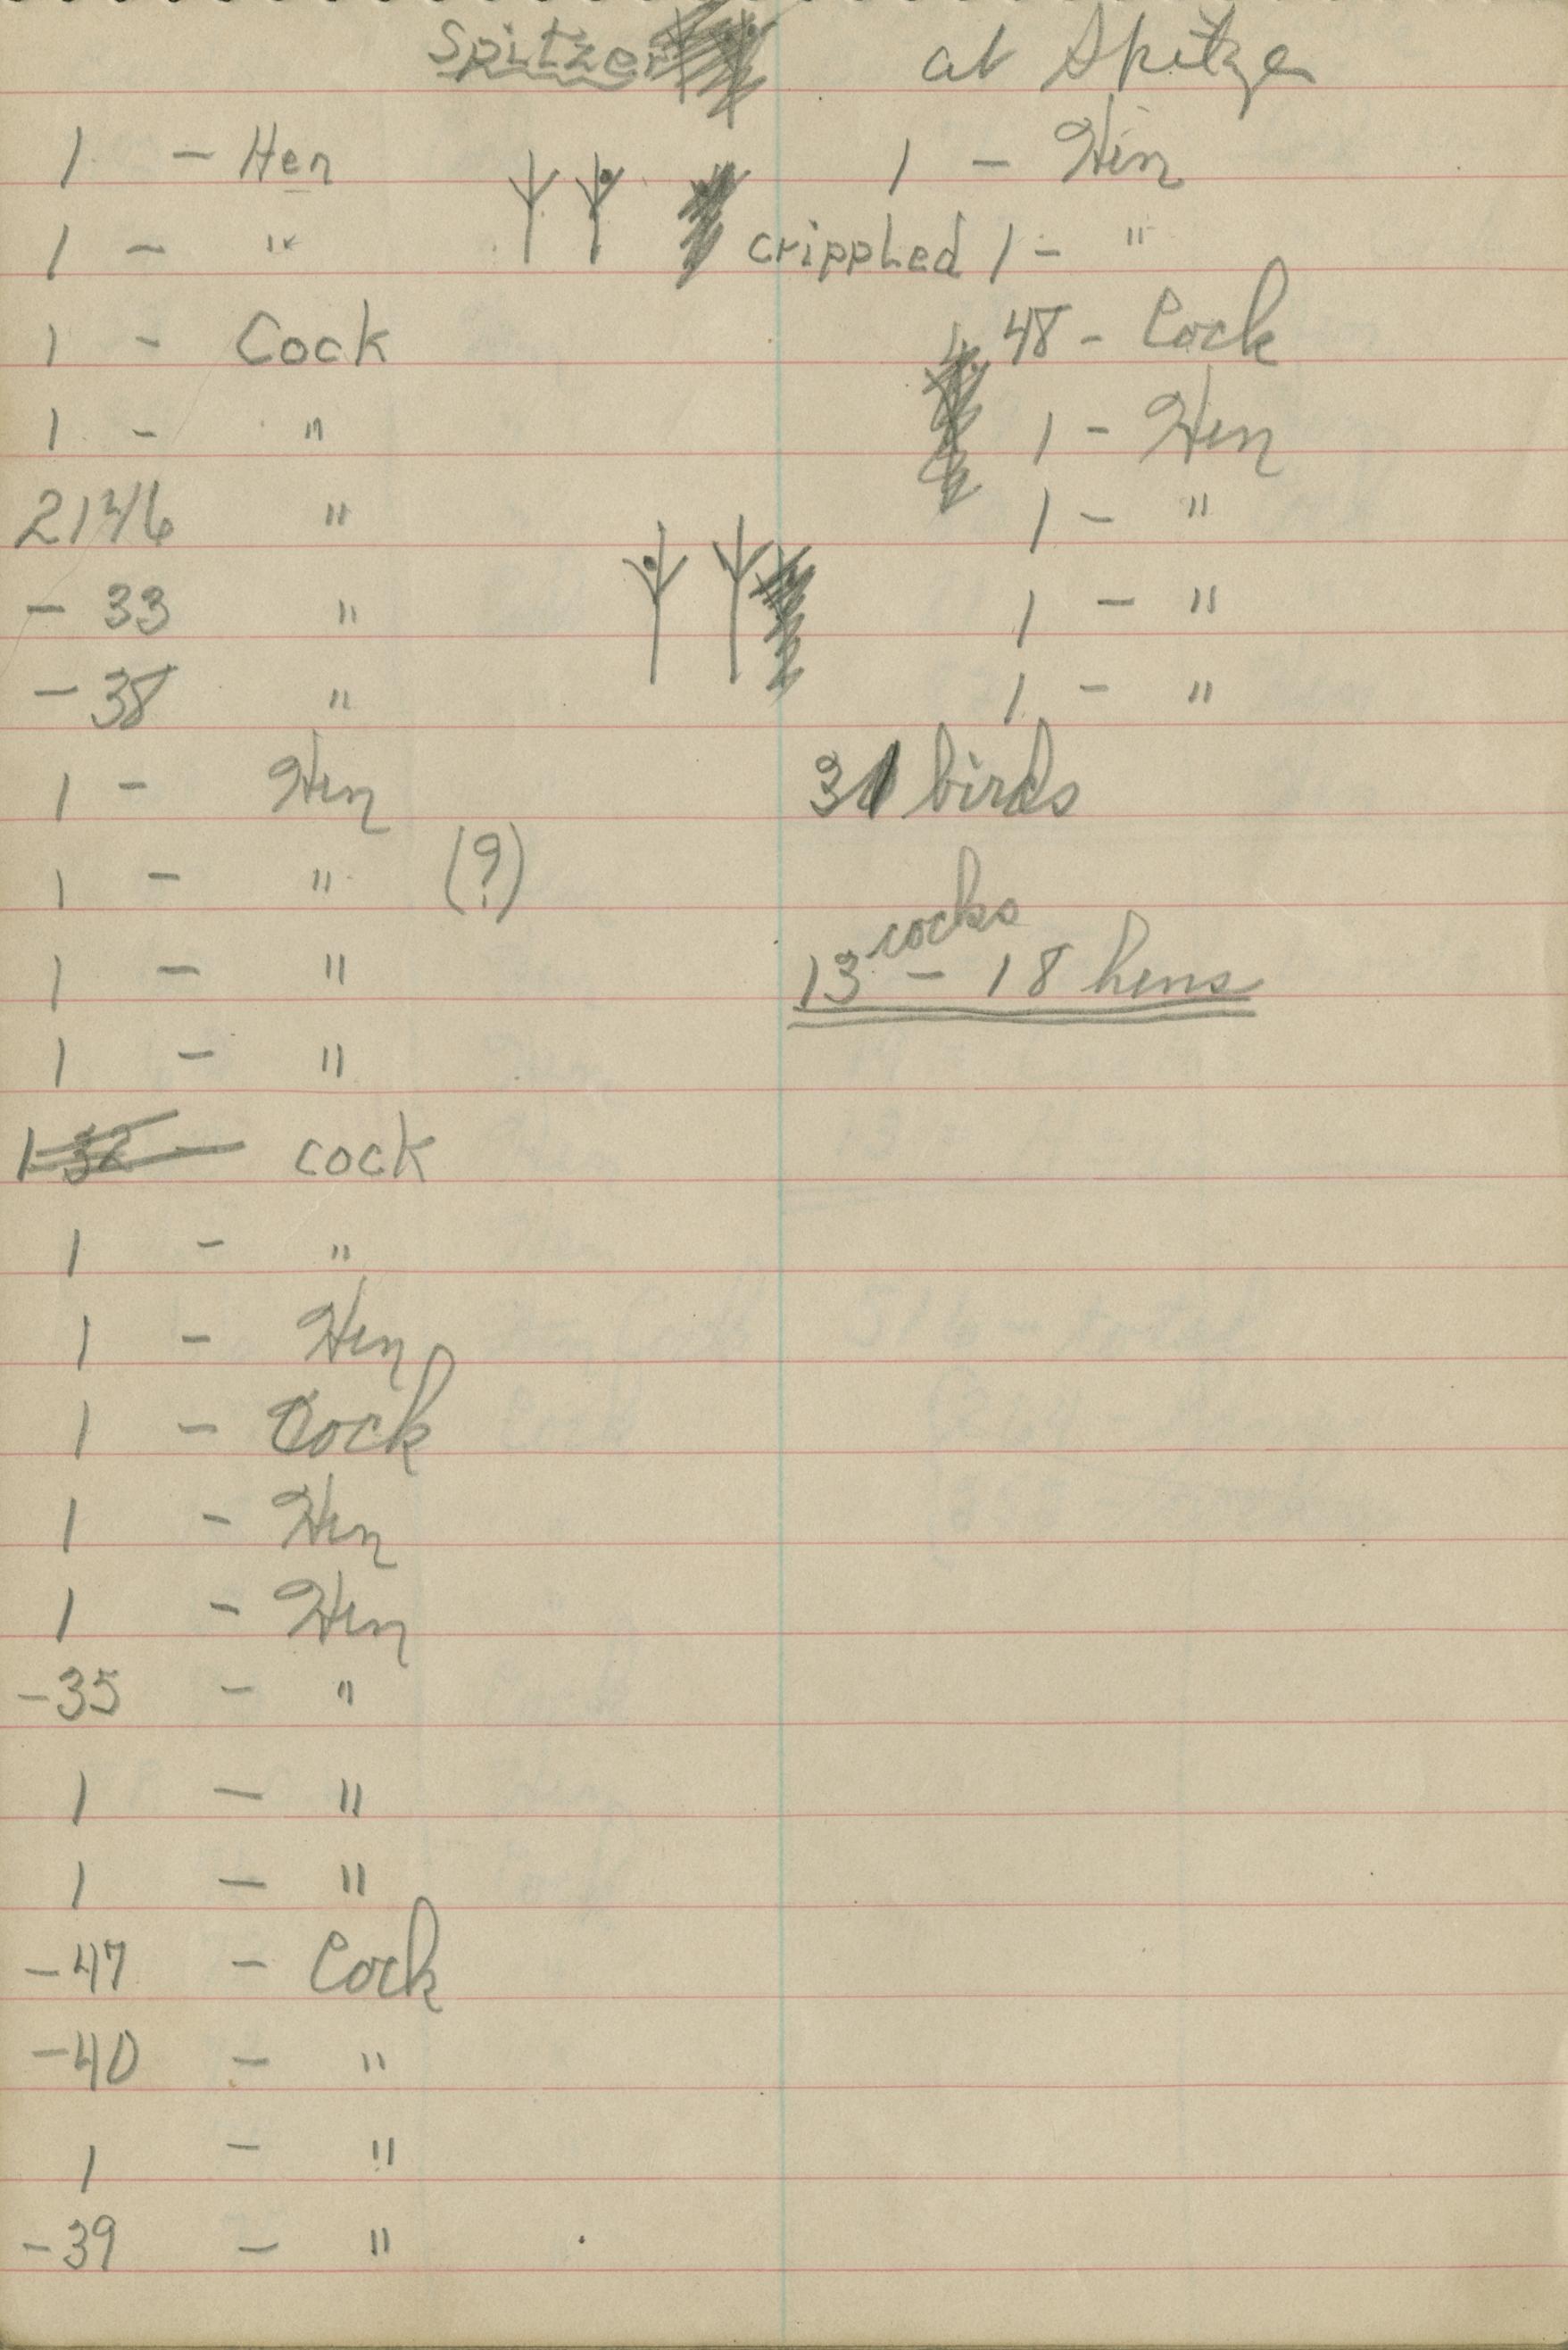 Spitzer
1 - Hen
1 - "
1 - Cock
1 - "
2146 "
- 33 "
- 38 "
1 - Hen
1 - " (?)
1 - "
1 - "
1 - 32 - cock
1 - "
1 - Hen
1 - Cock
1 - Hen
1 - Hen
- 35 - "
1 - "
1 - "
- 47 - Cock
- 40 - "
1 - "
- 39 - "
at Spitze
1 - Hen
crippled 1 - "
48 - Cock
1 - Hen
1 - "
1 - "
1 - "
31 birds
cocks
13 - 18 hens